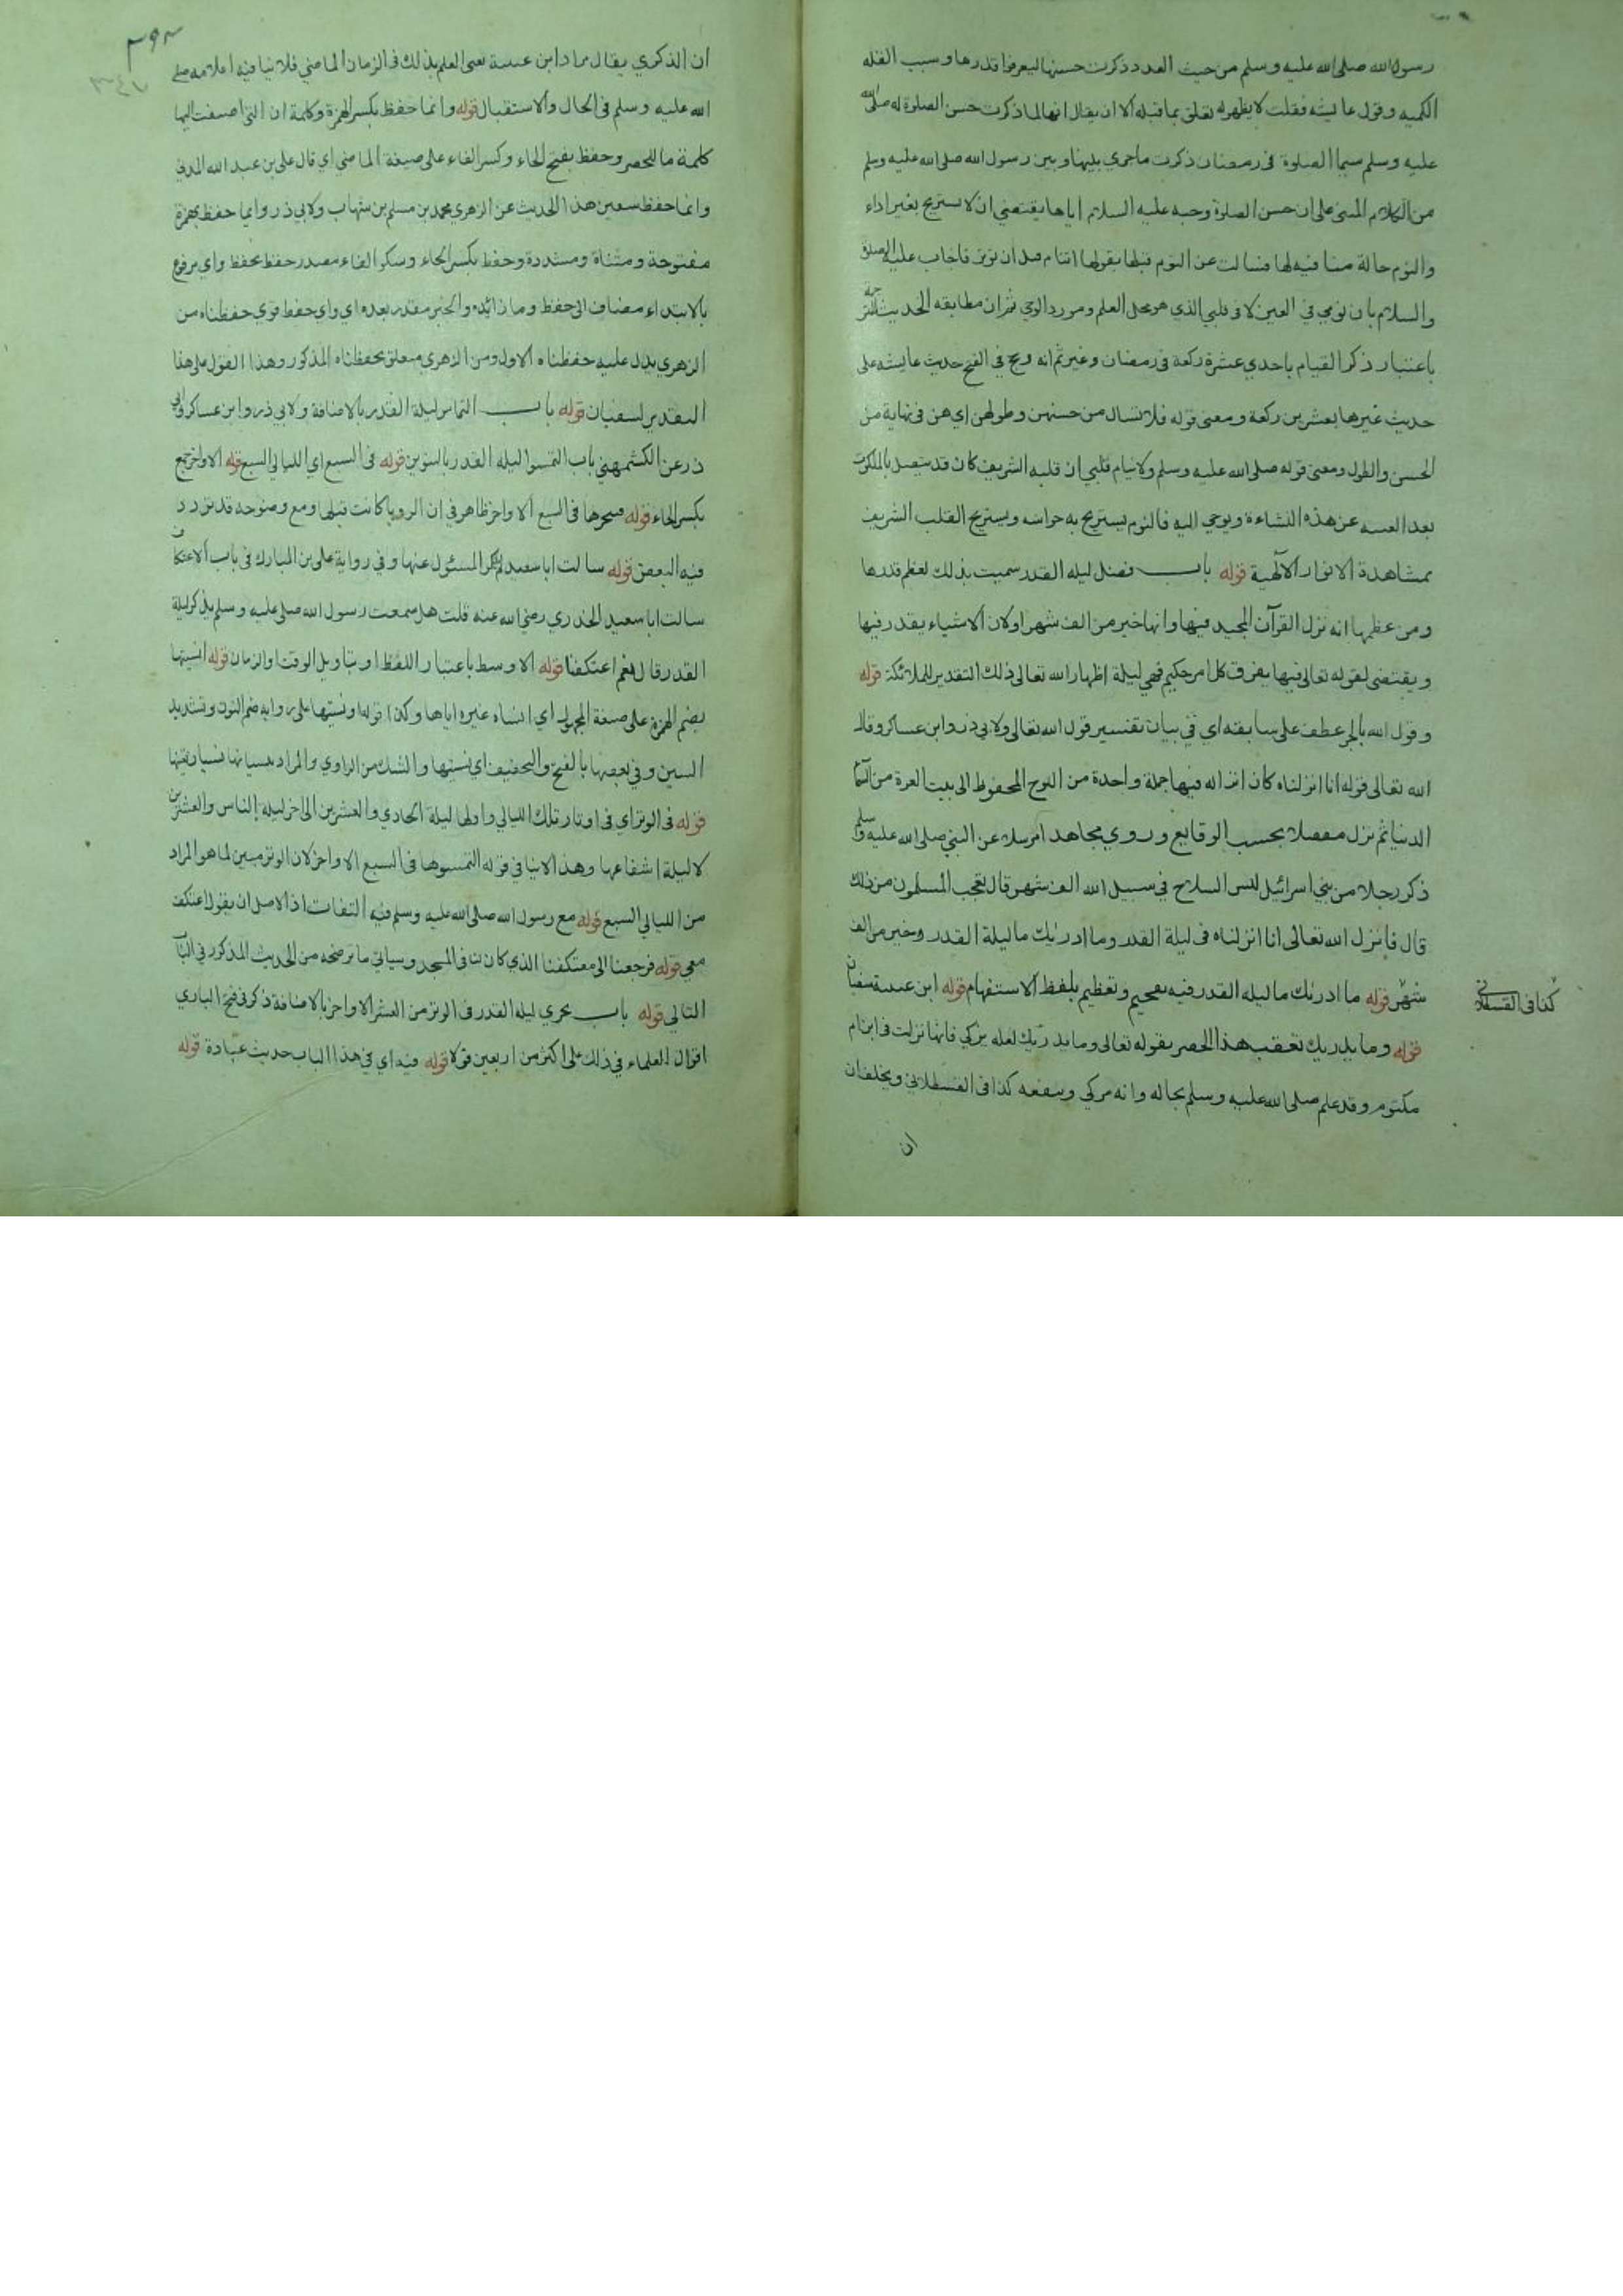 رسول الله صلى الله عليه وسلم من حيث العدد ذكرت حسنها ليعرفوا قدرها وسبب القلة
الكمية وقول عايشه فقلت لا يظهر له تعلق بما قبله الا ان يقال انها لما ذكرت حسن الصلوة له صلى الله
عليه وسلم سيما الصلوة فى رمضان ذكرت ما جرى بينها وبين رسول الله صلى الله عليه وسلم
من الكلام المبنى على ان حسن الصلوة وحبه عليه السلام اياها يقتضي ان لا يستريح بغير اداء
والنوم حالة منافيه لها فسالت عن النوم قبلها بقولها اتنام قبل ان توتر فاجاب عليه الصلوة
والسلام بان نومي في العين لا فى قلبي الذي هو محل العلم ومورد الوحي ثم ان مطابقه الحديث للترجمة
باعتبار ذكر القيام باحدي عشرة ركعة فى رمضان وغيره ثم انه رجح في الفتح حديث عايشه على
حديث غيرها بعشرين ركعة ومعنى قوله فلا تسال من حسنهن وطولهن اي هن فى نهاية من
الحسن والطول ومعنى قوله صلى الله عليه وسلم ولا ينام قلبي ان قلبه الشريف كان قد يتصل بالملكوت
بعد الغيبه عن هذه النشاءة ويوحي اليه فالنوم يستريح به حواسه ويستريح القلب الشريف
بمشاهدة الانوار الآلهية قوله باب فضل ليله القدر سميت بذلك لعظم قدرها
ومن عظمها انه نزل القرآن المجيد فيها وانها خير من الف شهر او لان الاشياء يقدر فيها
ويقتضى لقوله تعالى فيها يفرق كل امر حكيم فهي ليلة اظهار الله تعالى ذلك التقدير للملائكة قوله
وقول الله بالجر عطف على سابقه اي فى بيان تفسير قول الله تعالى ولابي ذر وابن عساكر وقال
الله تعالى قوله انا انزلناه كان انزاله فيها جملة واحدة من اللوح المحفوظ الى بيت العزة من السما
الدنيا ثم نزل مفصلا بحسب الوقايع وروي مجاهد امرسلا عن النبي صلى الله عليه وسلم
ذكر رجلا من بني اسرائيل لبس السلاح في سبيل الله الف شهر قال تعجب المسلمون من ذلك
قال فانزل الله تعالى انا انزلناه فى ليلة القدر وما ادريك ما ليلة القدر وخير من الف
شهر قوله ما ادريك ما ليله القدر فيه تفخيم وتعظيم بلفظ الاستفهام قوله ابن عيينة سفيان
كذا فى القسطلاني
قوله وما يدريك تعقب هذا الحصر بقوله تعالى وما يدريك لعله يزكي فانها نزلت فى ابن ام
مكتوم وقد علم صلى الله عليه وسلم بحاله وانه مزكي وينفعه كذا فى القسطلاني ويخلف ان
ان
٣٩٢
٣٤٧
ان الذكري يقال مراد ابن عيينة نفى العلم بذلك فى الزمان الماضي فلا ينافيه اعلامه صلى
الله عليه وسلم فى الحال والاستقبال قوله وانما حفظ بكسر الهمزة وكلمة ان التى اضيفت اليها
كلمة ما للحصر وحفظ بفتح الحاء وكسر الفاء على صيغة الماضي اي قال على بن عبد الله المديني
وانما حفظ سفين هذا الحديث عن الزهري محمد بن مسلم بن شهاب ولابي ذر وايما حفظ بهمزة
مفتوحة ومثناة ومشددة وحفظ بكسر الحاء وسكو الفاء مصدر حفظ يحفظ واي مرفوع
بالابتداء مضاف الى حفظ وما زائده والخبر مقدر بعده اي واي حفظ قوي حفظناه من
الزهري يدل عليه حفظناه الاول ومن الزهري متعلق بحفظناه المذكور وهذا القول على هذا
التقدير لسفيان قوله باب التماس ليلة القدر بالاضافة ولابي ذر وابن عساكر ولابي
ذر عن الكشميهني باب التمسوا ليله القدر بالتنوين قوله فى السبع اي الليالي السبع قوله الاواخر جمع
بكسر الخاء قوله فتحروها فى السبع الاواخر ظاهر فى ان الرويا كانت قبلها ومع وضوحه قد تردد
فيه البعض قوله سالت ابا سعيد لم يذكر المسئول عنها وفى رواية على بن المبارك فى باب الاعتكاف
سالت ابا سعيد الخدري رضي الله عنه قلت هل سمعت رسول الله صلى عليه وسلم يذكر ليلة
القدر قال نعم اعتكفنا قوله الاوسط باعتبار اللفظ او بتاويل الوقت او الزمان قوله انسيتها
بضم الهمزة على صيغة المجهول اي انساه غيره اياها وكذا قوله او نسيتها على روايه ضم النون وتشديد
السين وفى بعضها بالفتح والتخفيف اي نسيها والشك من الراوي والمراد نسيانها نسيان تعيينها
قوله فى الوتر اي فى اوتار تلك الليالي واولها ليلة الحادي والعشرين الى اخر ليلة التاسع والعشرين
لا ليلة اشفاعها وهذا لا ينافى قوله التمسوها فى السبع الاواخر لان الوتر مبين لما هو المراد
من الليالي السبع قوله مع رسول الله صلى الله عليه وسلم فيه التفات اذ الاصل ان يقول اعتكف
معي قوله فرجعنا الى معتكفنا الذي كان فى المسجد وسياتى ما توضحه من الحديث المذكور فى الباب
التالى قوله باب تحري ليله القدر فى الوتر من العشر الاواخر بالاضافة ذكر فى فتح الباري
اقوال العلماء فى ذلك على اكثر من اربعين قولا قوله فيه اي في هذا الباب حديث عبادة قوله